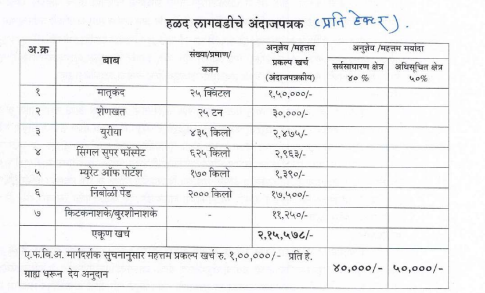 हळद लागवडीचे अंदाजपत्रक (प्रति हेक्टर).
अ.क्र बाब संख्या/प्रमाण/वजन अनुज्ञेय /महत्तम प्रकल्प खर्च (अंदाजपत्रकीय) अनुज्ञेय/महत्तम मर्यादा
सर्वसाधारण क्षेत्र ४० % अधिसूचित क्षेत्र ५०%
१ मातृकंद २५ क्विंटल १,५०,०००/-
२ शेणखत २५ टन ३०,०००/-
३ युरीया ४३५ किलो २,४७५/-
४ सिंगल सुपर फॉस्मेट ६२५ किलो २,९६३/-
५ म्युरेट ऑफ पोटॅश १७० किलो १,३९०/-
६ निंबोळी पेंड २००० किलो १७,५००/-
७ किटकनाशके/बुरशीनाशके - ११,२५०/-
एकूण खर्च २,१५,५७८/-
ए.फ.वि.अ. मार्गदर्शक सुचनानुसार महत्तम प्रकल्प खर्च रु. १,००,०००/- प्रति हे.
ग्राह्य धरून देय अनुदान ४०,०००/- ५०,०००/-